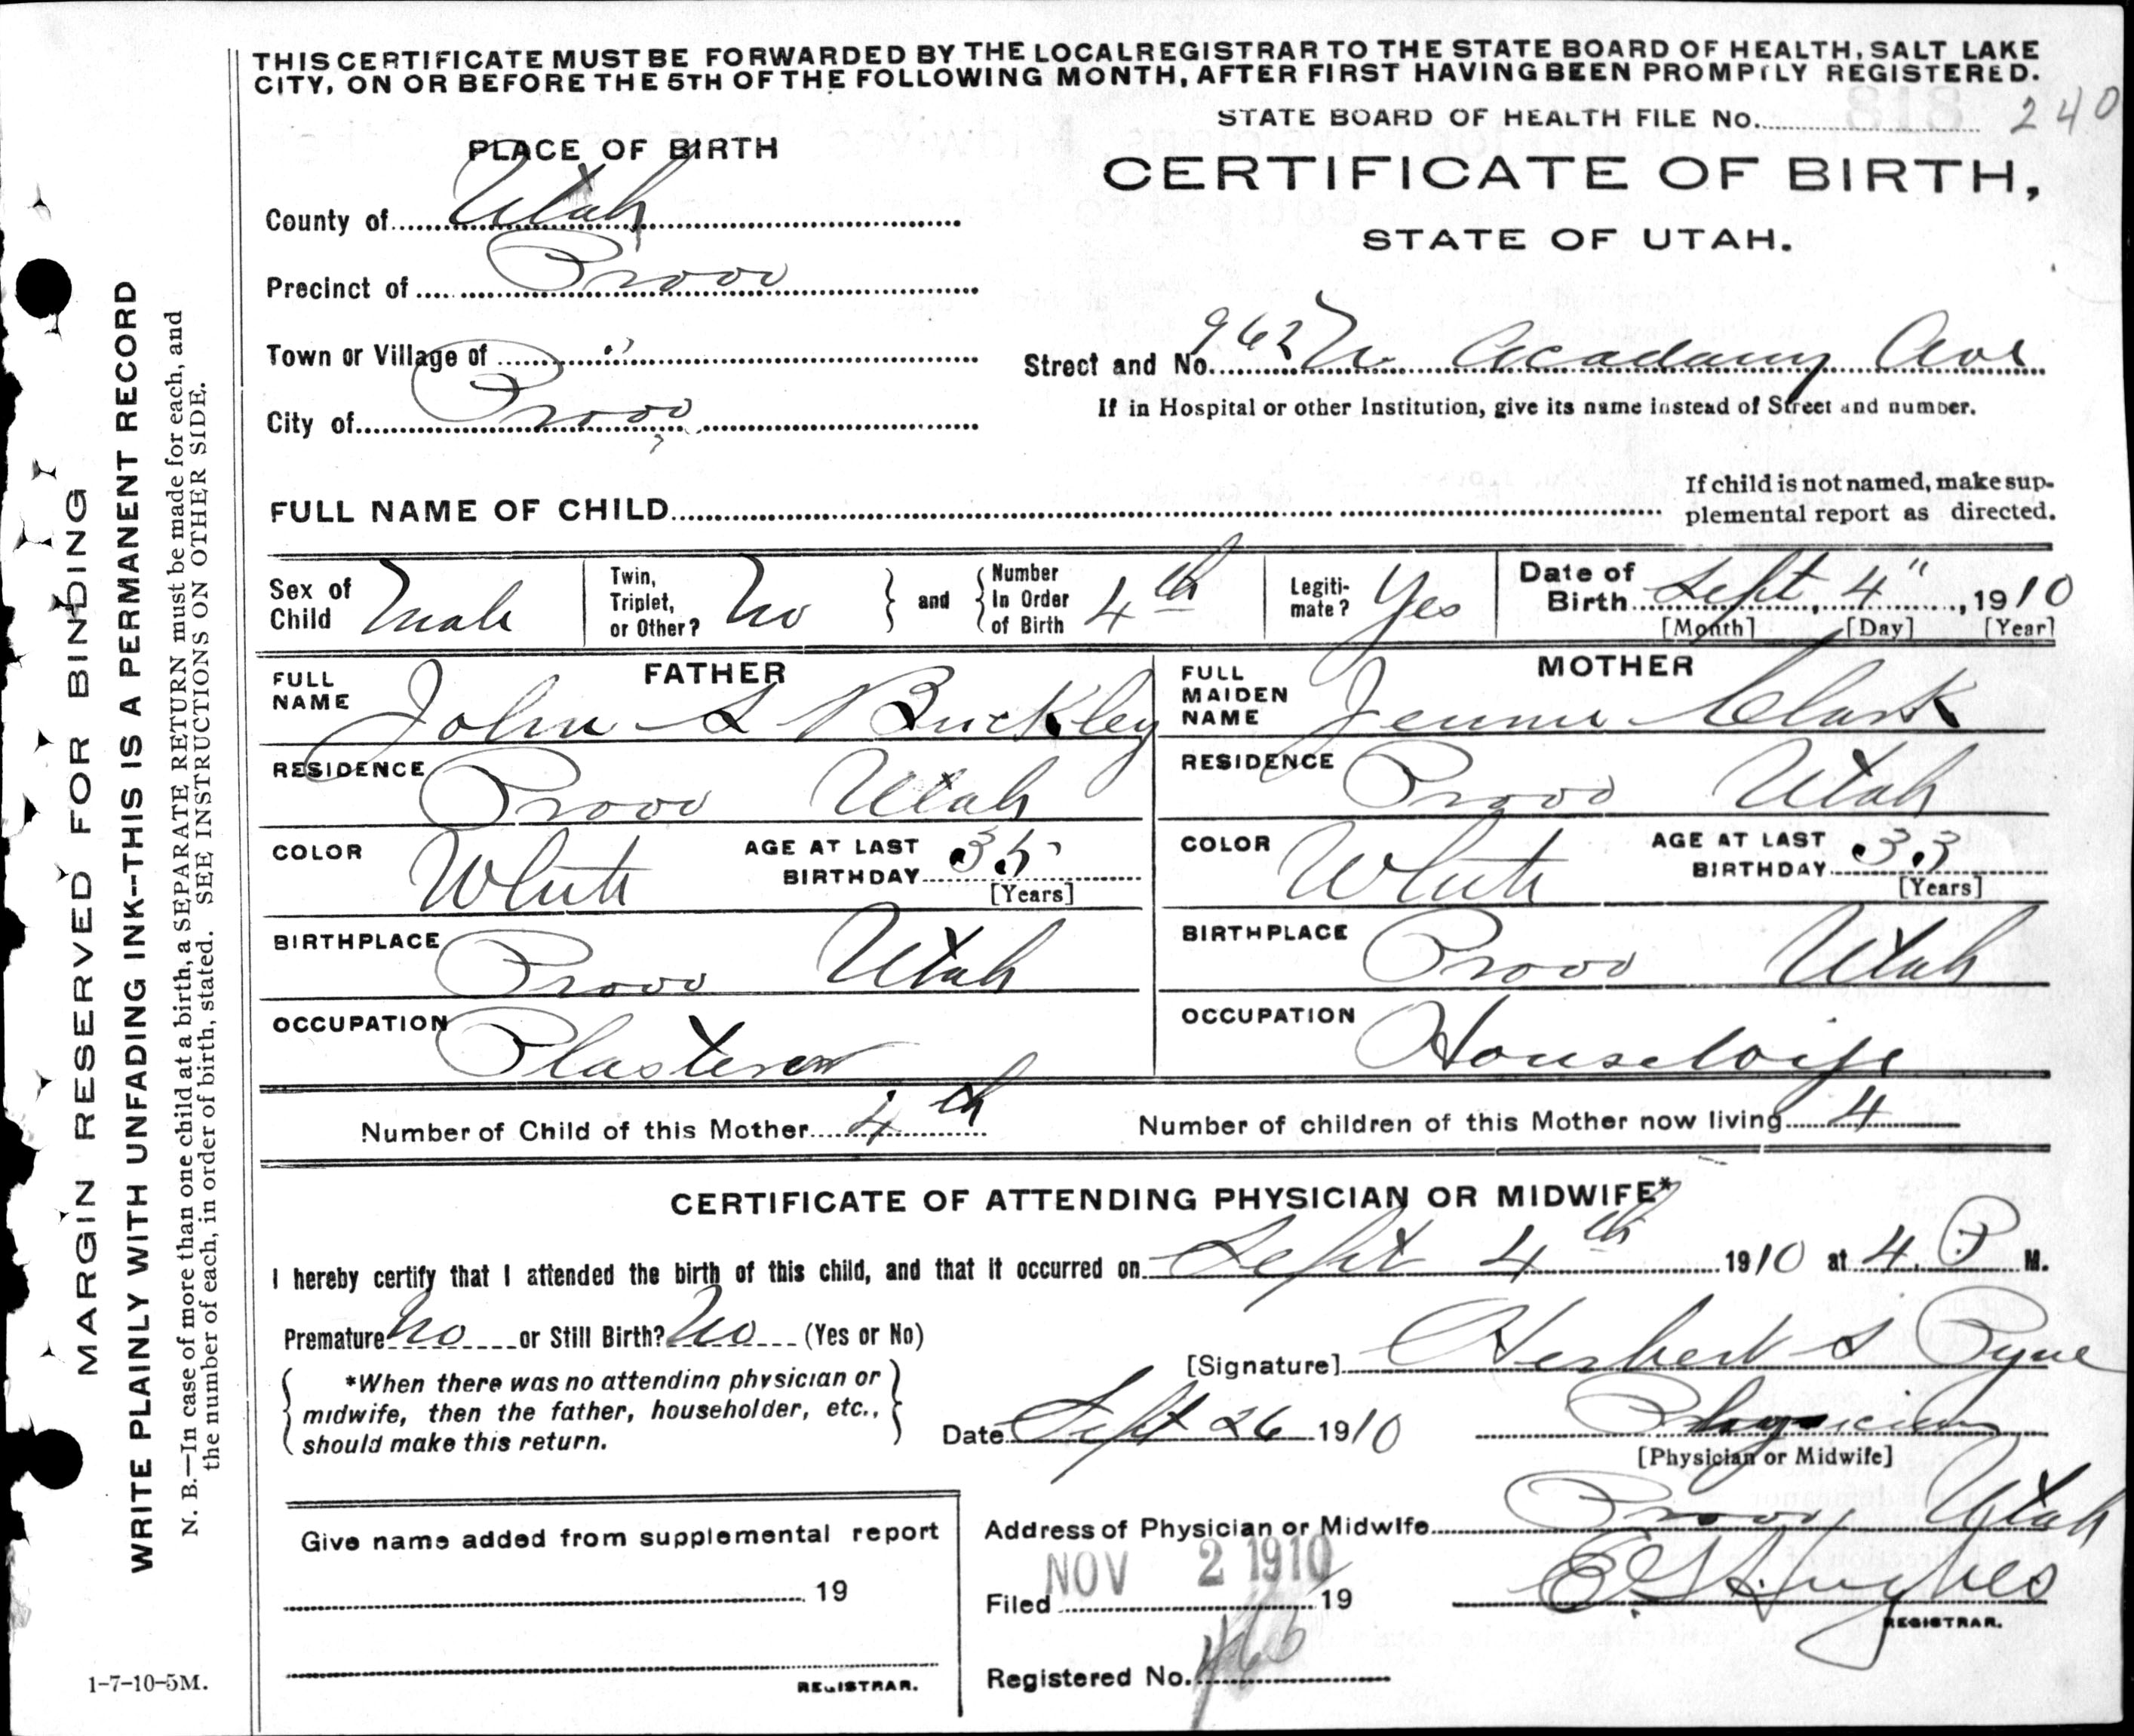 THIS CERTIFICATE MUST BE FORWARDED BY THE LOCAL REGISTRAR TO THE STATE BOARD OF HEALTH, SALT LAKE
CITY, ON OR BEFORE THE 5TH OF THE FOLLOWING MONTH, AFTER FIRST HAVING BEEN PROMPTLY REGISTERED.
STATE BOARD OF HEALTH FILE No. 240
PLACE OF BIRTH
CERTIFICATE OF BIRTH,
STATE OF UTAH.
County of Utah
Precinct of Provo
Town or Village of "
City of Provo
Street and No. 962 N. Academy Ave
If in Hospital or other Institution, give its name instead of Street and number.
FULL NAME OF CHILD
If child is not named, make sup-
plemental report as directed.
Sex of Child Male
Twin, Triplet, or Other? No and Number In Order of Birth 4th
Legiti-mate? Yes
Date of Birth Sept 4", 1910
[Month] [Day] [Year]
FATHER
FULL NAME John S Buckley
RESIDENCE Provo Utah
COLOR White AGE AT LAST BIRTHDAY 35
[Years]
BIRTHPLACE Provo Utah
OCCUPATION Plasterer
MOTHER
FULL MAIDEN NAME Jennie Clark
RESIDENCE Provo Utah
COLOR White AGE AT LAST BIRTHDAY 33
[Years]
BIRTHPLACE Provo Utah
OCCUPATION Housewife
Number of Child of this Mother 4th Number of children of this Mother now living 4
CERTIFICATE OF ATTENDING PHYSICIAN OR MIDWIFE*
I hereby certify that I attended the birth of this child, and that it occurred on Sept 4th 1910 at 4. P M.
Premature No or Still Birth? No (Yes or No)
*When there was no attending physician or
midwife, then the father, householder, etc.,
should make this return.
[Signature] Herbert S Pyne
Date Sept 26 1910 Physician
[Physician or Midwife]
Address of Physician or Midwife Provo, Utah
Give name added from supplemental report
19
REGISTRAR.
NOV 2 1910
Filed 19 E G Hughes
REGISTRAR.
Registered No.
1-7-10-5M.
MARGIN RESERVED FOR BINDING
WRITE PLAINLY WITH UNFADING INK--THIS IS A PERMANENT RECORD
N. B.—In case of more than one child at a birth, a SEPARATE RETURN must be made for each, and
the number of each, in order of birth, stated. SEE INSTRUCTIONS ON OTHER SIDE.